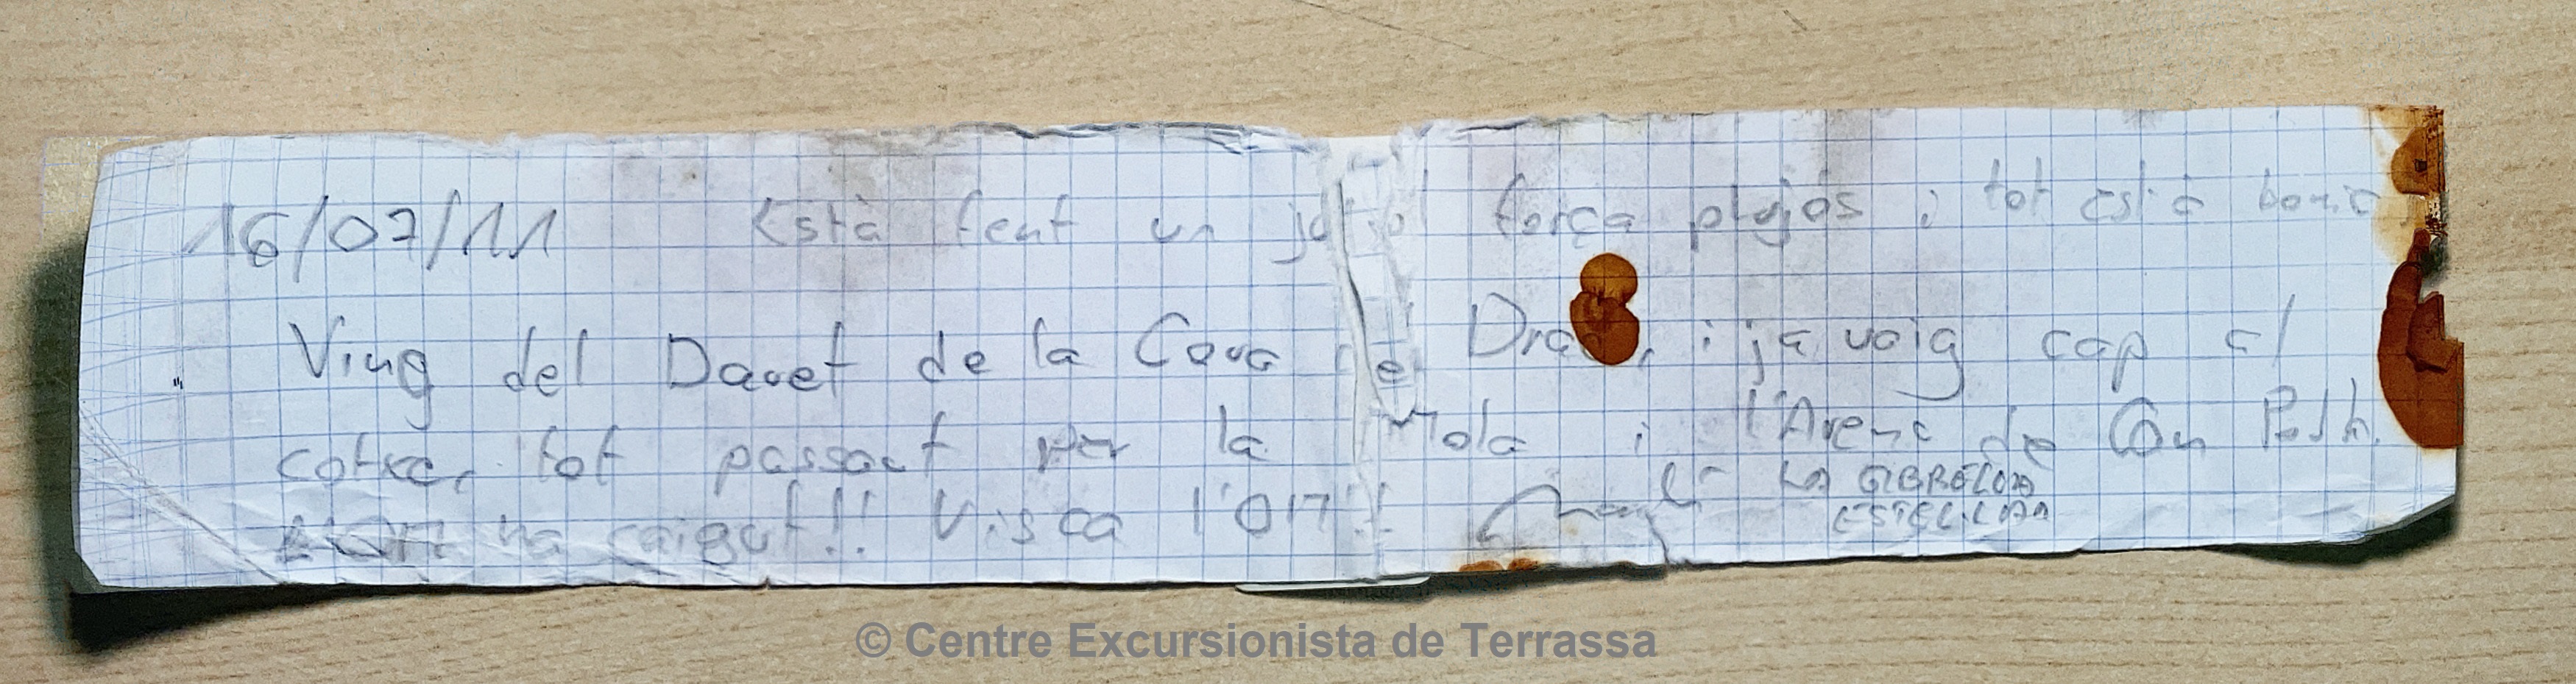 16/07/11 Està fent un juliol força plujós i tot està bonic,
Ving del Davet de la Cova del Drac, i ja vaig cap al
cotxe, tot passant per la Mola i l'Avenc de Can Pobla.
ha caigut!! Visca l'017!!
LA GIBRELLA
ESTEL·LADA
© Centre Excursionista de Terrassa